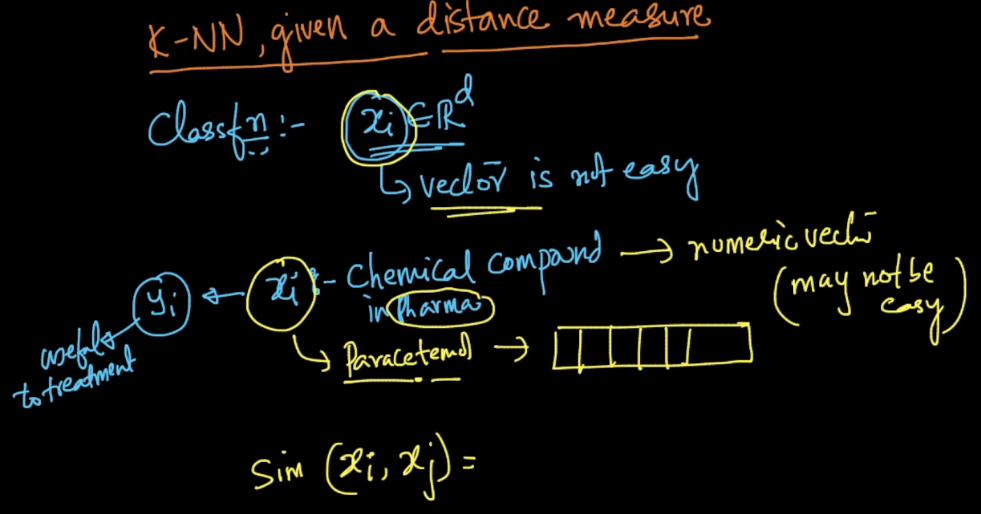 K-NN, given a distance measure
Classfn :- xi ∈ ℝ^d
↳ vector is not easy
yi ← xi :- Chemical compound → numeric vector
in Pharma (may not be easy)
useful to treatment
↳ Paracetemol →
Sim (xi, xj) =